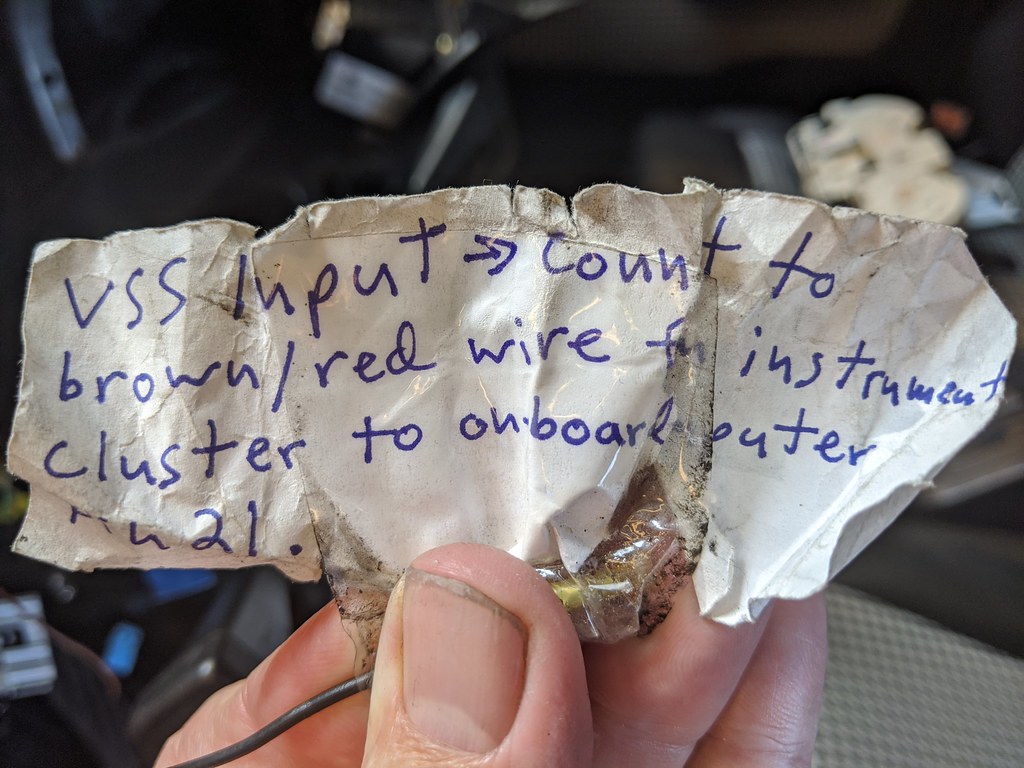 VSS Input → Count to
brown/red wire in instrument
cluster to onboard puter
21.